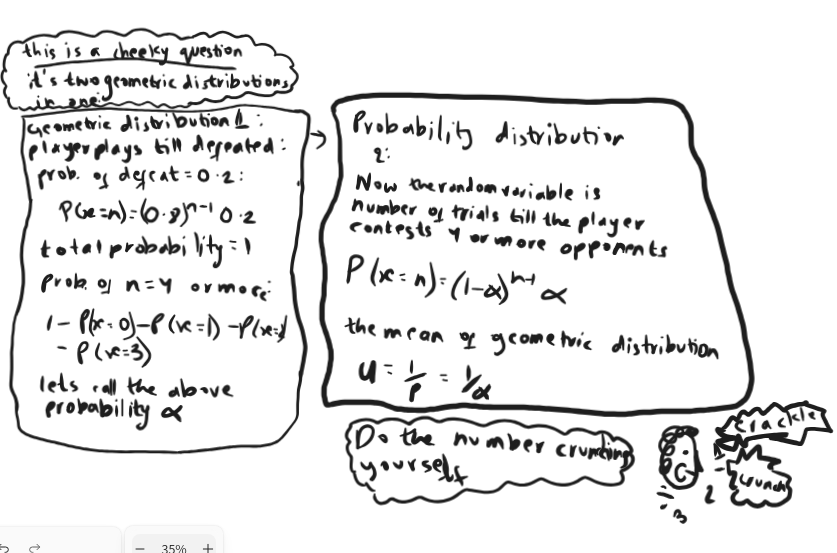 this is a cheeky question
it's two geometric distributions
in one:
Geometric distribution 1:
player plays till defeated:
prob. of defeat = 0.2:
P(x=n)=(0.8)^{n-1} 0.2
total probability = 1
Prob. of n=4 or more:
1 - P(x=0) - P(x=1) - P(x=2)
- P(x=3)
lets call the above
probability α
Probability distribution
2:
Now the random variable is
number of trials till the player
contests 4 or more opponents
P(x=n)=(1-α)^{n-1} α
the mean of geometric distribution
u = 1/p = 1/α
Do the number crunching
yourself
crackle
crunch
2
÷ 3
35%